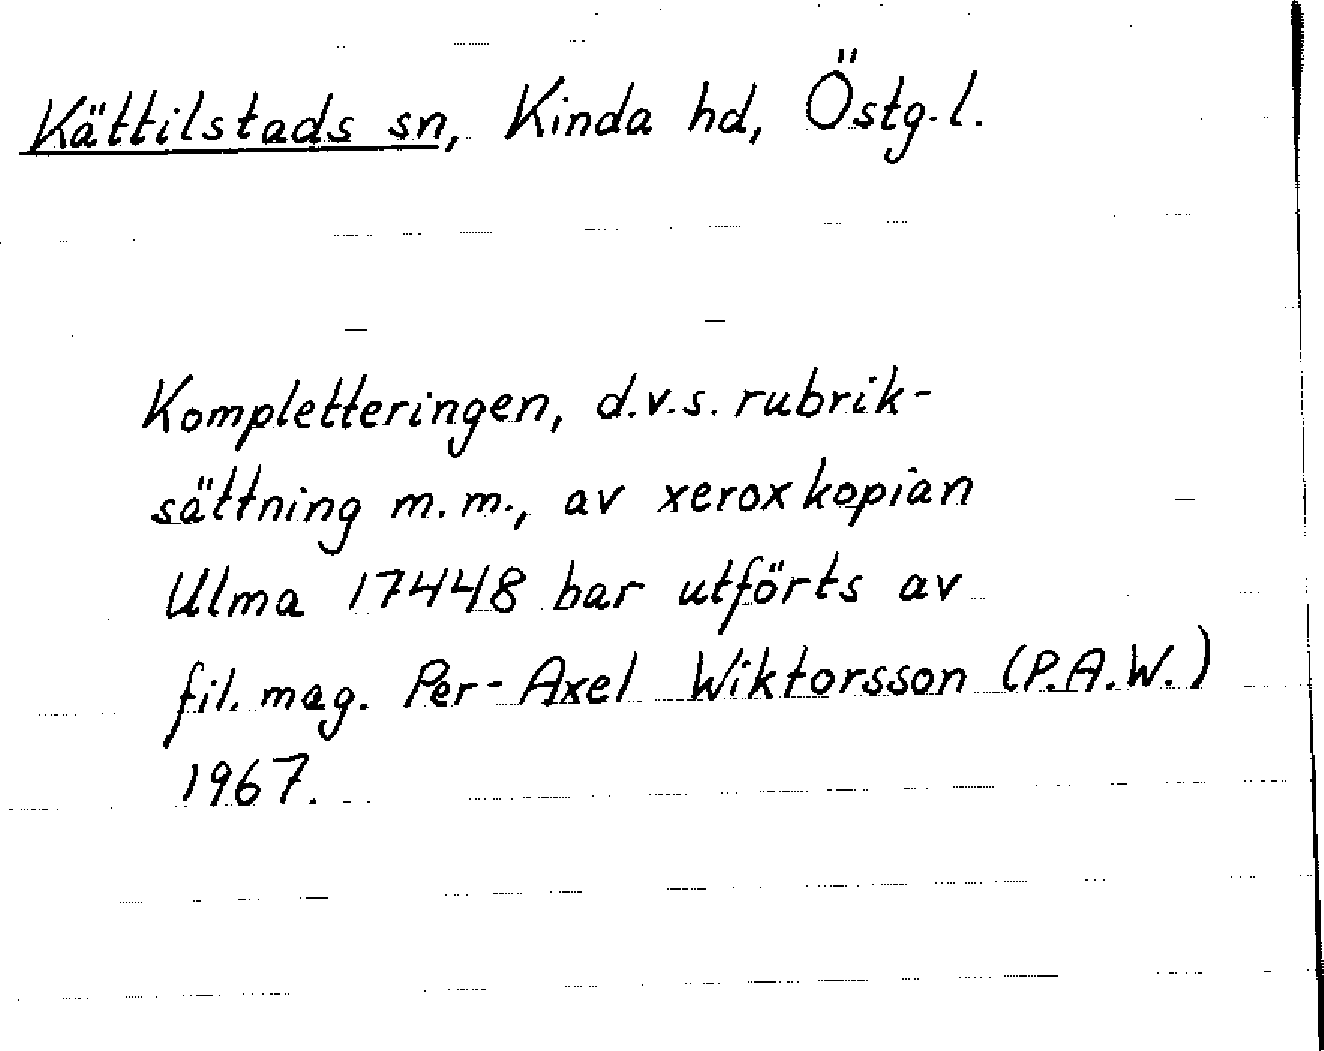 Kättilstads sn, Kinda hd, Östg.l.
Kompletteringen, d.v.s. rubrik-
sättning m.m., av xeroxkopian
Ulma 17448 har utförts av
fil. mag. Per-Axel Wiktorsson (P.A.W.)
1967.